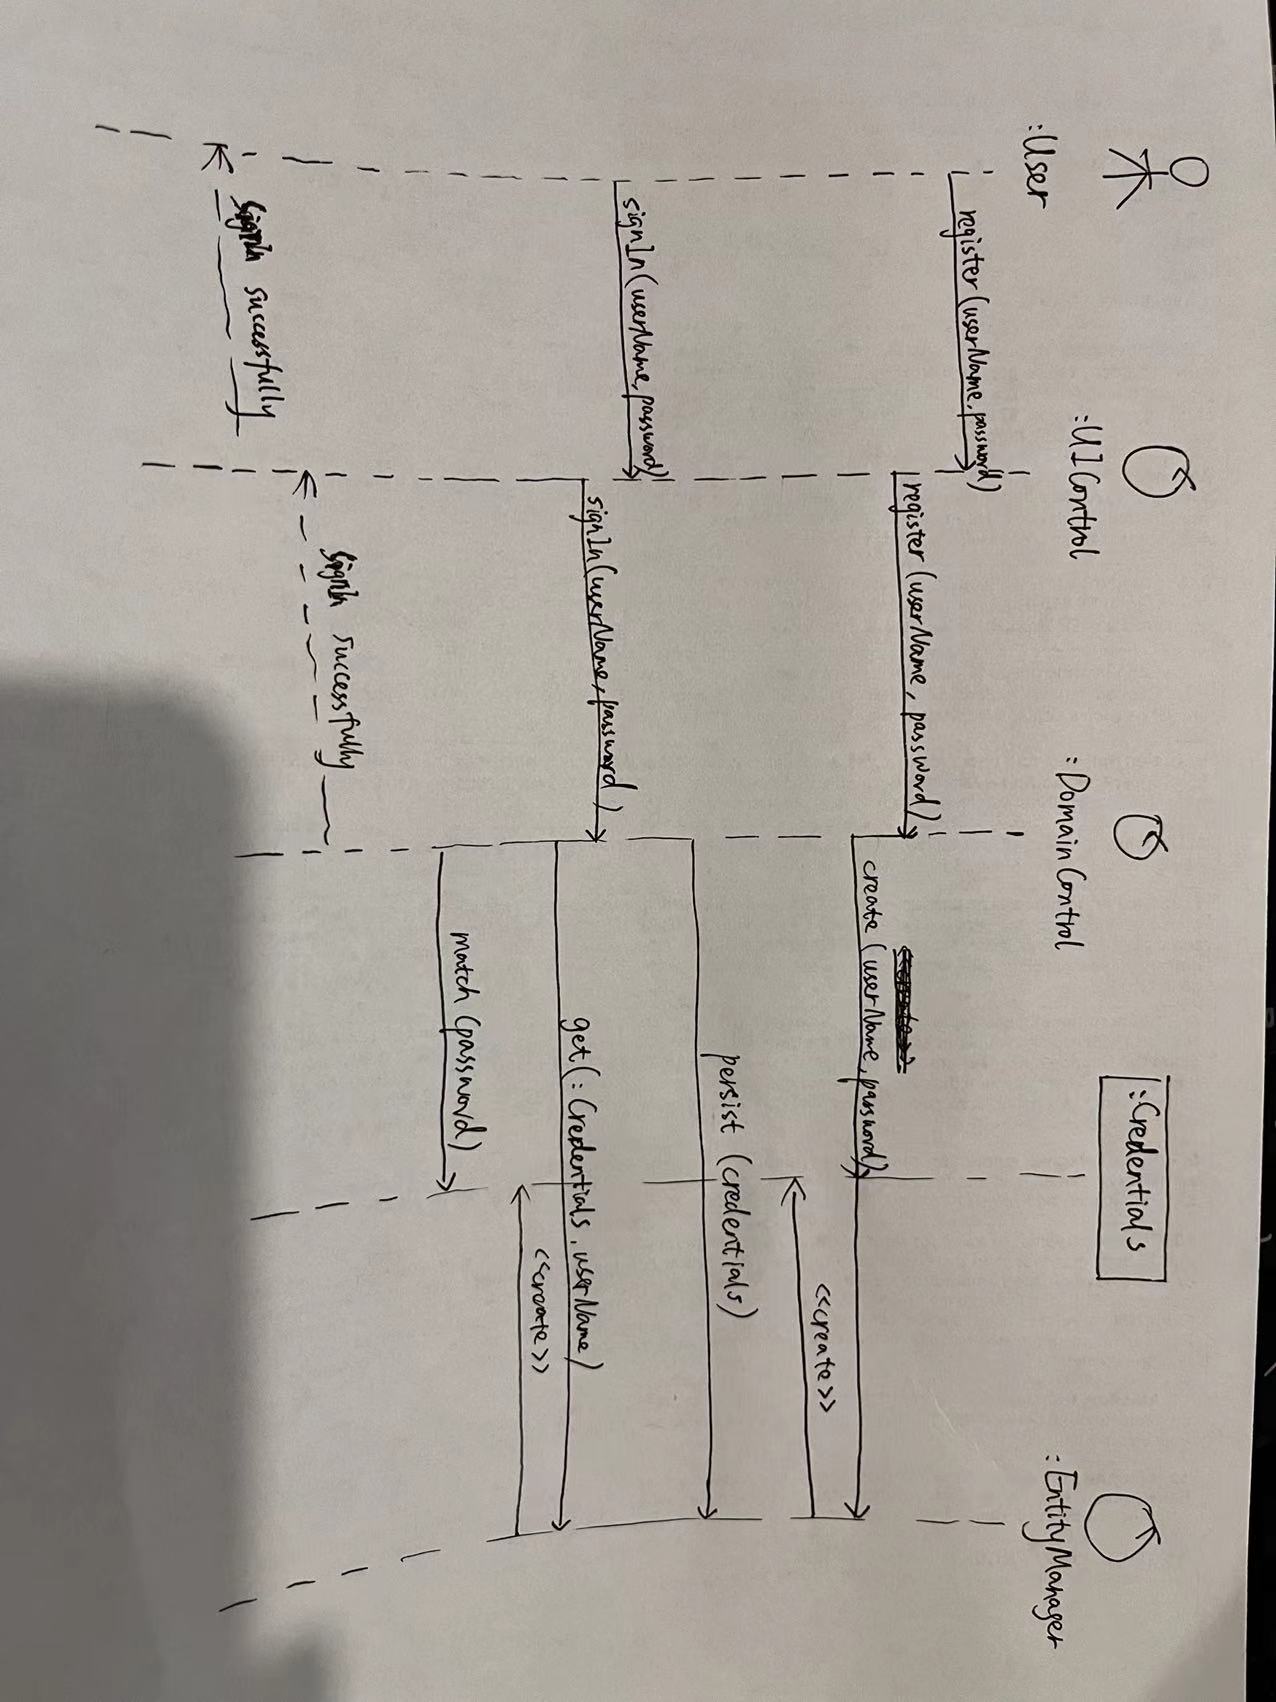 :User
:UIControl
:DomainControl
:Credentials
:EntityManager
register(userName,password)
register(userName, password)
create(userName,password)
<<create>>
<<create>>
persist (credentials)
signIn(userName,password)
signIn(userName,password)
get(:Credentials,userName)
<<create>>
match(password)
signIn successfully
signIn successfully